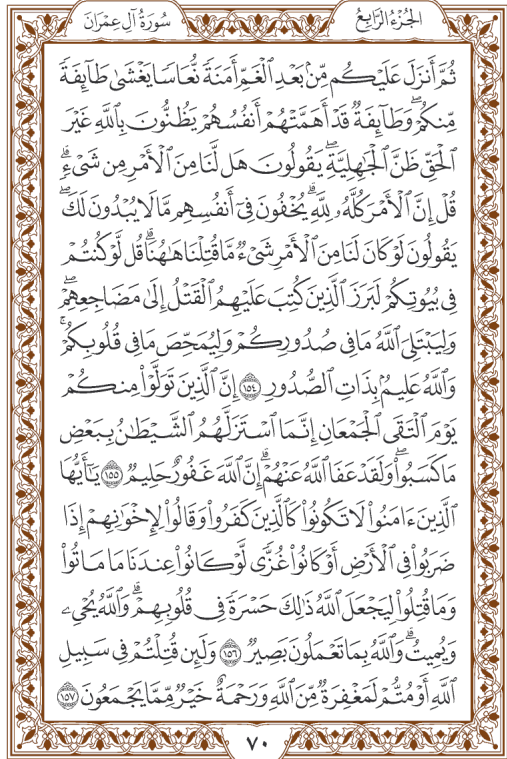 الجُزْءُ الرَّابِعُ
سُورَةُ آلِ عِمْرَان
ثُمَّ أَنزَلَ عَلَيْكُم مِّنۢ بَعْدِ ٱلْغَمِّ أَمَنَةً نُّعَاسًا يَغْشَىٰ طَآئِفَةً
مِّنكُمْۖ وَطَآئِفَةٌ قَدْ أَهَمَّتْهُمْ أَنفُسُهُمْ يَظُنُّونَ بِٱللَّهِ غَيْرَ
ٱلْحَقِّ ظَنَّ ٱلْجَٰهِلِيَّةِۖ يَقُولُونَ هَل لَّنَا مِنَ ٱلْأَمْرِ مِن شَىْءٍۗ
قُلْ إِنَّ ٱلْأَمْرَ كُلَّهُۥ لِلَّهِۗ يُخْفُونَ فِىٓ أَنفُسِهِم مَّا لَا يُبْدُونَ لَكَۖ
يَقُولُونَ لَوْ كَانَ لَنَا مِنَ ٱلْأَمْرِ شَىْءٌ مَّا قُتِلْنَا هَٰهُنَاۗ قُل لَّوْ كُنتُمْ
فِى بُيُوتِكُمْ لَبَرَزَ ٱلَّذِينَ كُتِبَ عَلَيْهِمُ ٱلْقَتْلُ إِلَىٰ مَضَاجِعِهِمْۖ
وَلِيَبْتَلِىَ ٱللَّهُ مَا فِى صُدُورِكُمْ وَلِيُمَحِّصَ مَا فِى قُلُوبِكُمْۚ
وَٱللَّهُ عَلِيمٌۢ بِذَاتِ ٱلصُّدُورِ ١٥٤ إِنَّ ٱلَّذِينَ تَوَلَّوْا۟ مِنكُمْ
يَوْمَ ٱلْتَقَى ٱلْجَمْعَانِ إِنَّمَا ٱسْتَزَلَّهُمُ ٱلشَّيْطَٰنُ بِبَعْضِ
مَا كَسَبُوا۟ۖ وَلَقَدْ عَفَا ٱللَّهُ عَنْهُمْۗ إِنَّ ٱللَّهَ غَفُورٌ حَلِيمٌ ١٥٥ يَٰٓأَيُّهَا
ٱلَّذِينَ ءَامَنُوا۟ لَا تَكُونُوا۟ كَٱلَّذِينَ كَفَرُوا۟ وَقَالُوا۟ لِإِخْوَٰنِهِمْ إِذَا
ضَرَبُوا۟ فِى ٱلْأَرْضِ أَوْ كَانُوا۟ غُزًّى لَّوْ كَانُوا۟ عِندَنَا مَا مَاتُوا۟
وَمَا قُتِلُوا۟ لِيَجْعَلَ ٱللَّهُ ذَٰلِكَ حَسْرَةً فِى قُلُوبِهِمْۗ وَٱللَّهُ يُحْىِۦ
وَيُمِيتُۗ وَٱللَّهُ بِمَا تَعْمَلُونَ بَصِيرٌ ١٥٦ وَلَئِن قُتِلْتُمْ فِى سَبِيلِ
ٱللَّهِ أَوْ مُتُّمْ لَمَغْفِرَةٌ مِّنَ ٱللَّهِ وَرَحْمَةٌ خَيْرٌ مِّمَّا يَجْمَعُونَ ١٥٧
٧٠